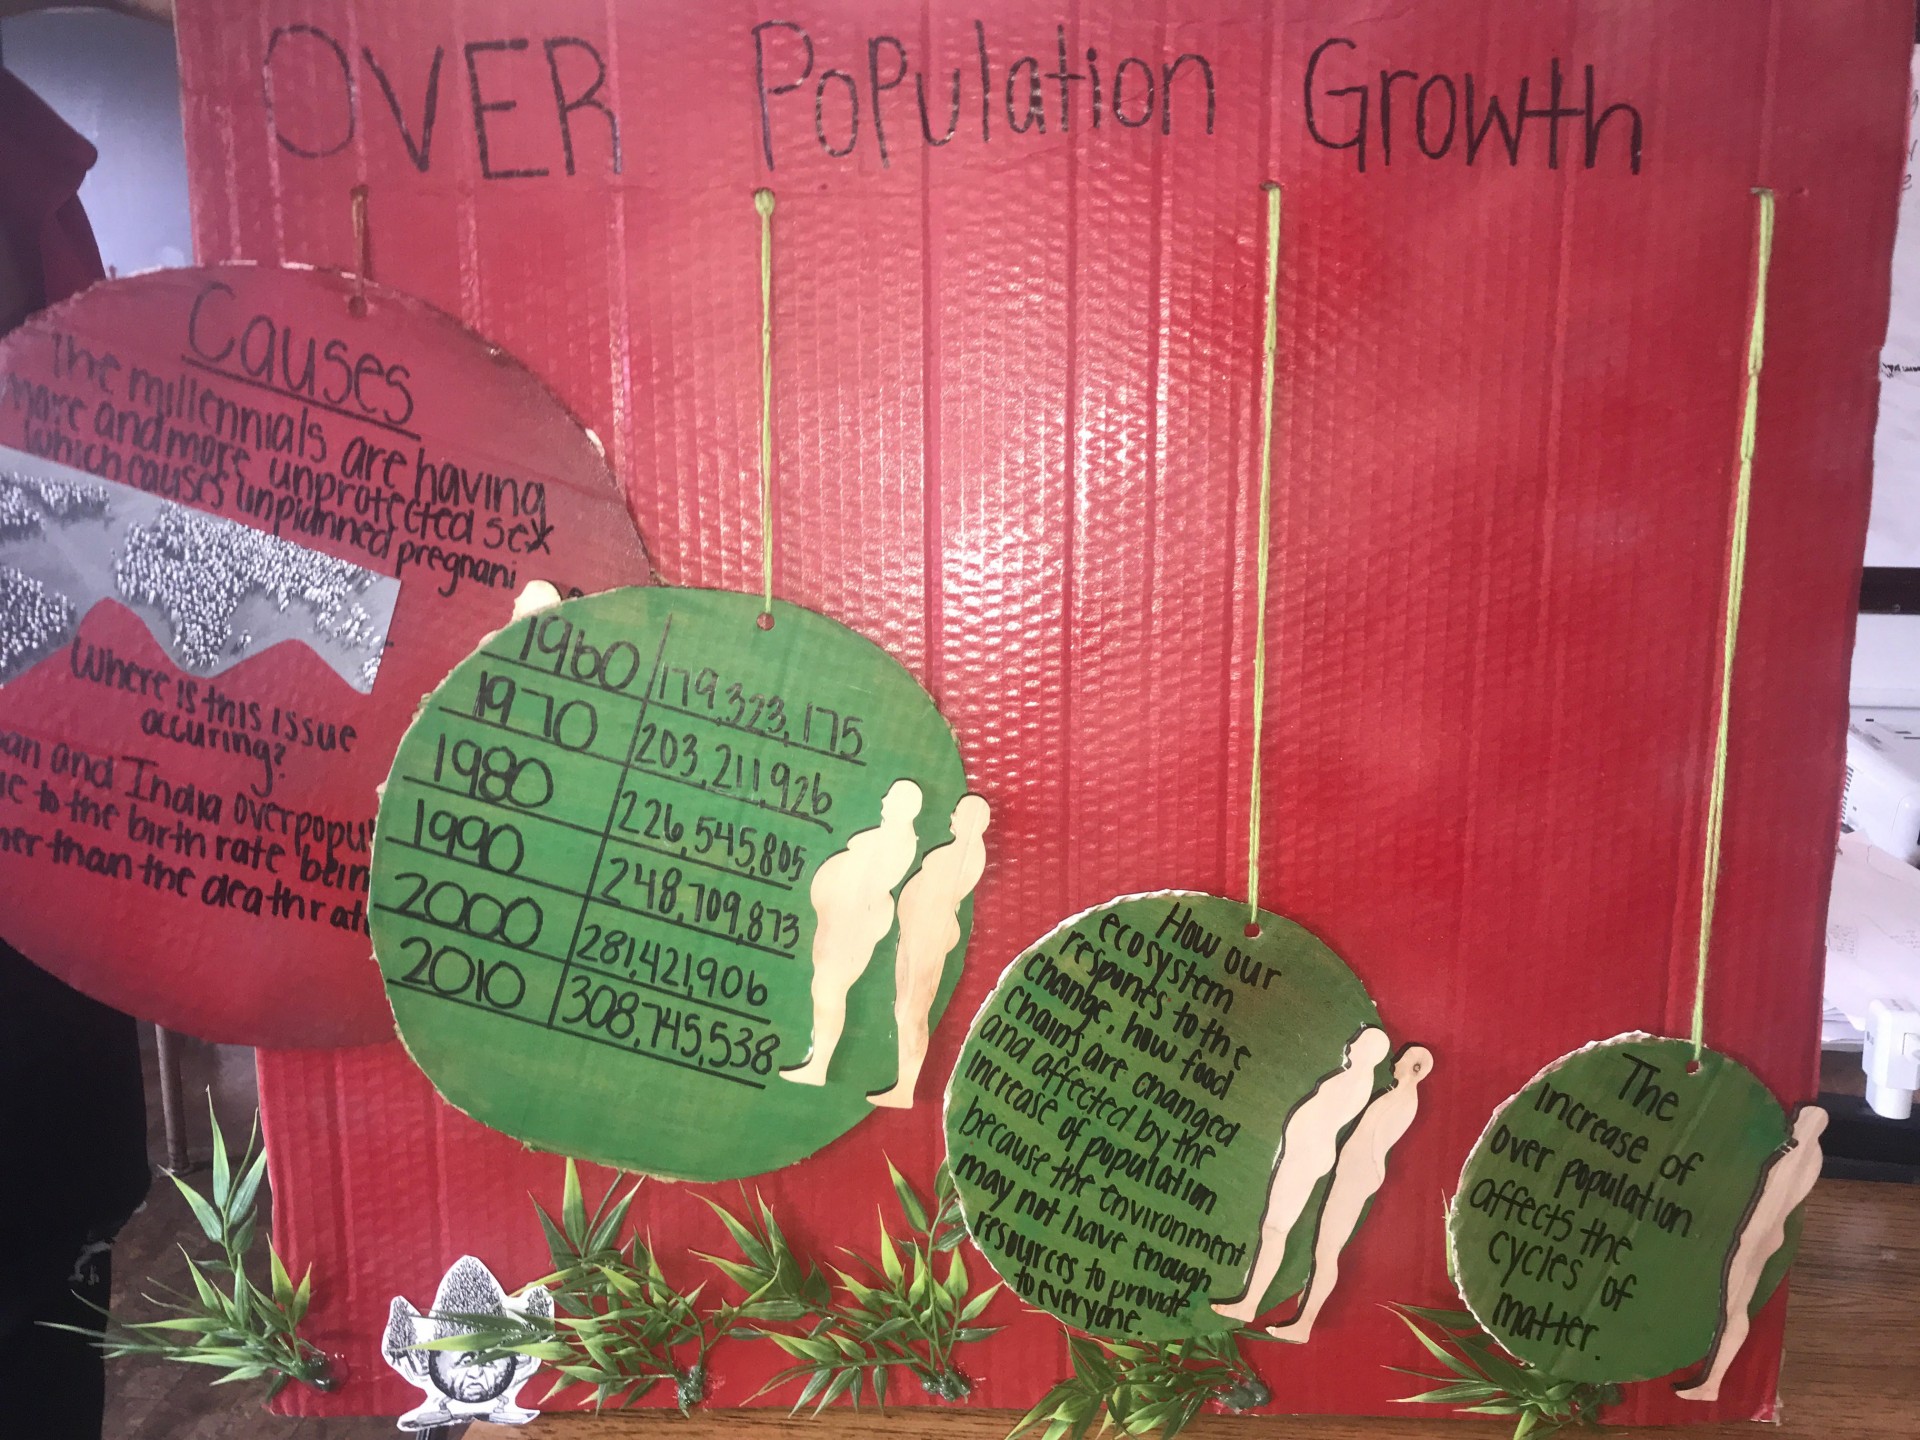 OVER Population Growth
Causes
The millennials are having
more and more unprotected sex
which causes unplanned pregnani
Where is this issue
accuring?
an and India overpopu
to the birth rate bein
than the death rat
1960 179,323,175
1970 203,211,926
1980 226,545,805
1990 248,709,873
2000 281,421,906
2010 308,745,538
How our
ecosystem
responts to the
change, how food
chains are changed
and affected by the
increase of population
because the environment
may not have enough
resources to provide
to everyone.
The
increase of
over population
affects the
cycles of
matter.